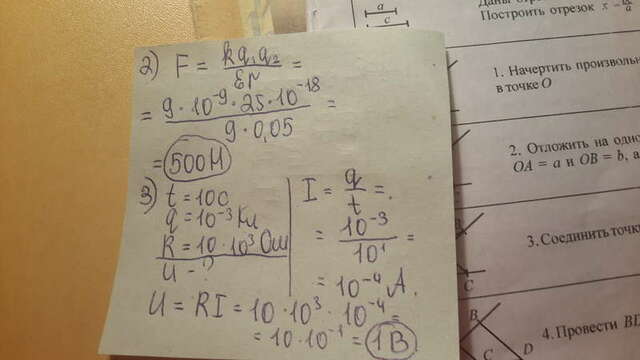 2) F = kq₁q₂ / εr =
= 9·10⁻⁹·25·10⁻¹⁸ / 9·0,05 =
= 500Н
3) t = 10с
q = 10⁻³ Кл
R = 10·10³ Ом
U - ?
I = q / t =
= 10⁻³ / 10¹ =
= 10⁻⁴ А.
U = RI = 10·10³·10⁻⁴ =
= 10·10⁻¹ = 1В
a
c
Построить отрезок x =
1. Начертить произволь
в точке O
2. Отложить на одно
OA = a и OB = b, а
3. Соединить точк
C
B
4. Провести BD
C
D